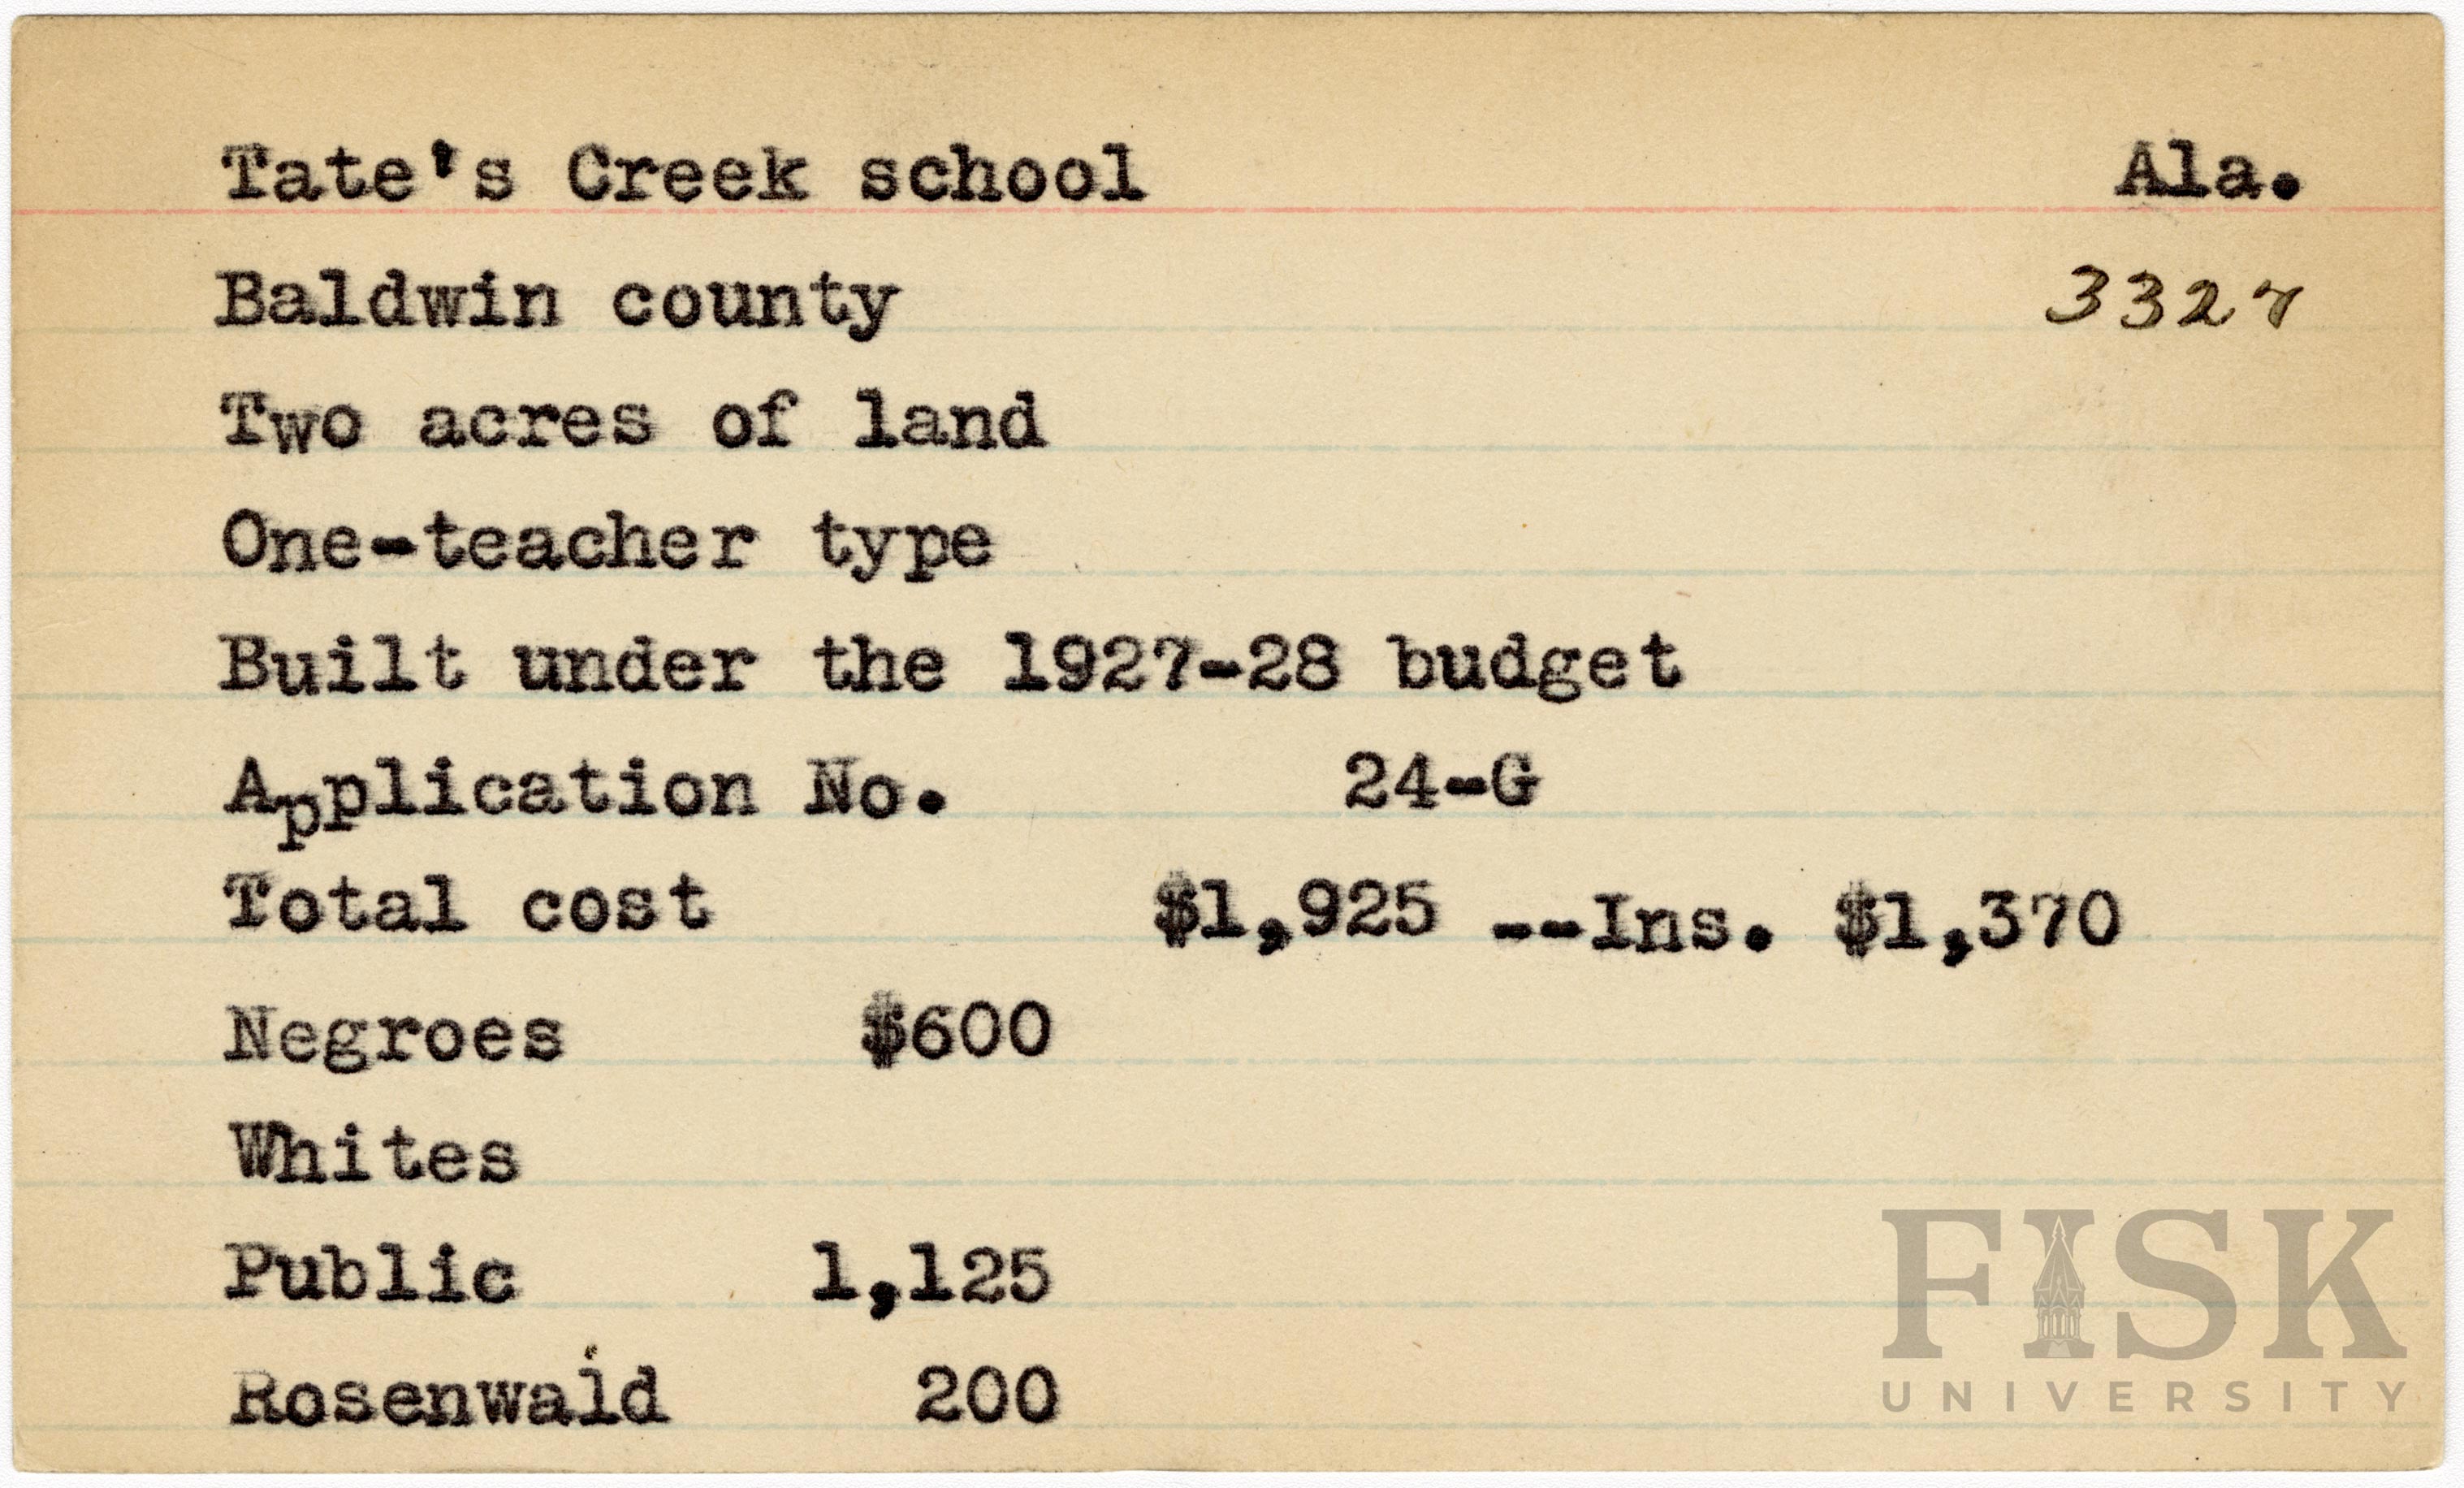 Tate's Creek school Ala.
Baldwin county 3327
Two acres of land
One-teacher type
Built under the 1927-28 budget
Application No. 24-G
Total cost $1,925 --Ins. $1,370
Negroes $600
Whites
Public 1,125
Rosenwald 200
FISK
UNIVERSITY